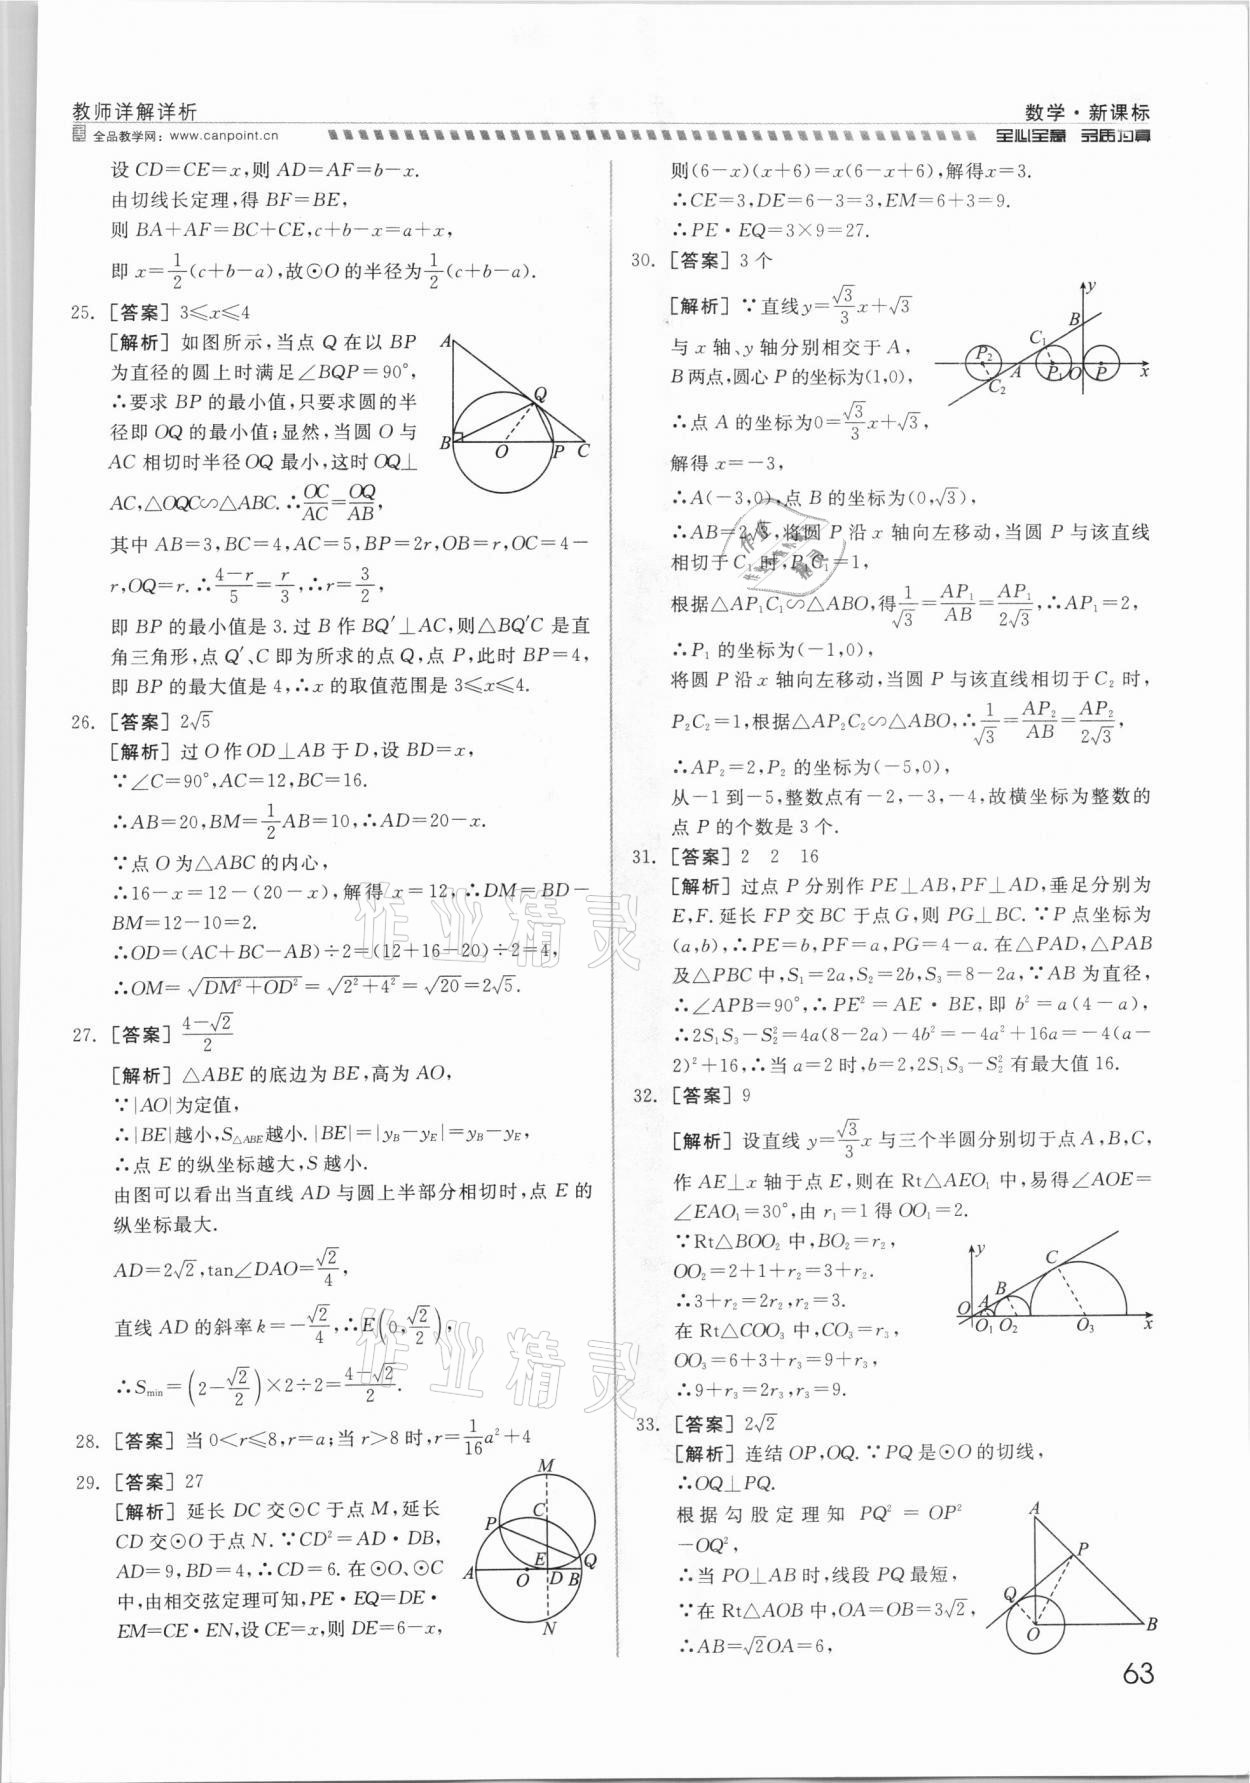 教师详解详析
数学·新课标
全品教学网：www.canpoint.cn
全心全意 努质为真
设 CD=CE=x,则 AD=AF=b-x.
由切线长定理,得 BF=BE,
则 BA+AF=BC+CE,c+b-x=a+x,
即 x=1/2(c+b-a),故⊙O的半径为1/2(c+b-a).
25. [答案] 3≤x≤4
[解析] 如图所示,当点 Q 在以 BP
为直径的圆上时满足∠BQP=90°,
∴要求 BP 的最小值,只要求圆的半
径即 OQ 的最小值;显然,当圆 O 与
AC 相切时半径 OQ 最小,这时 OQ⊥
AC,△OQC∽△ABC.∴OC/AC=OQ/AB,
其中 AB=3,BC=4,AC=5,BP=2r,OB=r,OC=4-
r,OQ=r.∴(4-r)/5=r/3,∴r=3/2,
即 BP 的最小值是 3.过 B 作 BQ′⊥AC,则△BQ′C 是直
角三角形,点 Q′、C 即为所求的点 Q,点 P,此时 BP=4,
即 BP 的最大值是 4,∴x 的取值范围是 3≤x≤4.
A
Q
B
O
P
C
26. [答案] 2√5
[解析] 过 O 作 OD⊥AB 于 D,设 BD=x,
∵∠C=90°,AC=12,BC=16.
∴AB=20,BM=1/2AB=10,∴AD=20-x.
∵点 O 为△ABC 的内心,
∴16-x=12-(20-x),解得 x=12,∴DM=BD-
BM=12-10=2.
∴OD=(AC+BC-AB)÷2=(12+16-20)÷2=4,
∴OM=√(DM²+OD²)=√(2²+4²)=√20=2√5.
27. [答案] (4-√2)/2
[解析] △ABE 的底边为 BE,高为 AO,
∵|AO|为定值,
∴|BE|越小,S△ABE越小.|BE|=|yB-yE|=yB-yE,
∴点 E 的纵坐标越大,S 越小.
由图可以看出当直线 AD 与圆上半部分相切时,点 E 的
纵坐标最大.
AD=2√2,tan∠DAO=√2/4,
直线 AD 的斜率 k=-√2/4,∴E(0,√2/2),
∴Smin=(2-√2/2)×2÷2=(4-√2)/2.
28. [答案] 当 0<r≤8,r=a;当 r>8 时,r=1/16a²+4
29. [答案] 27
[解析] 延长 DC 交⊙C 于点 M,延长
CD 交⊙O 于点 N.∵CD²=AD·DB,
AD=9,BD=4,∴CD=6.在⊙O、⊙C
中,由相交弦定理可知,PE·EQ=DE·
EM=CE·EN,设 CE=x,则 DE=6-x,
M
P
C
E
Q
A
O
D
B
N
则(6-x)(x+6)=x(6-x+6),解得x=3.
∴CE=3,DE=6-3=3,EM=6+3=9.
∴PE·EQ=3×9=27.
30. [答案] 3 个
[解析] ∵直线y=√3/3x+√3
与 x 轴、y 轴分别相交于 A,
B两点,圆心 P 的坐标为(1,0),
∴点 A 的坐标为0=√3/3x+√3,
解得 x=-3,
∴A(-3,0),点 B 的坐标为(0,√3),
∴AB=2√3,将圆 P 沿 x 轴向左移动,当圆 P 与该直线
相切于 C₁时,P₁C₁=1,
根据△AP₁C₁∽△ABO,得1/√3=AP₁/AB=AP₁/2√3,∴AP₁=2,
∴P₁ 的坐标为(-1,0),
将圆 P 沿 x 轴向左移动,当圆 P 与该直线相切于 C₂ 时,
P₂C₂=1,根据△AP₂C₂∽△ABO,∴1/√3=AP₂/AB=AP₂/2√3,
∴AP₂=2,P₂ 的坐标为(-5,0),
从-1 到-5,整数点有-2,-3,-4,故横坐标为整数的
点 P 的个数是 3 个.
y
B
C₁
P₂
C₂
A
P₁
O
P
x
31. [答案] 2 2 16
[解析] 过点 P 分别作 PE⊥AB,PF⊥AD,垂足分别为
E,F.延长 FP 交 BC 于点 G,则 PG⊥BC.∵P 点坐标为
(a,b),∴PE=b,PF=a,PG=4-a.在△PAD,△PAB
及△PBC 中,S₁=2a,S₂=2b,S₃=8-2a,∵AB 为直径,
∴∠APB=90°,∴PE²=AE·BE,即 b²=a(4-a),
∴2S₁S₃-S₂²=4a(8-2a)-4b²=-4a²+16a=-4(a-
2)²+16,∴当 a=2 时,b=2,2S₁S₃-S₂² 有最大值 16.
32. [答案] 9
[解析] 设直线 y=√3/3x 与三个半圆分别切于点 A,B,C,
作 AE⊥x 轴于点 E,则在 Rt△AEO₁ 中,易得∠AOE=
∠EAO₁=30°,由 r₁=1 得 OO₁=2.
∵Rt△BOO₂ 中,BO₂=r₂,
OO₂=2+1+r₂=3+r₂.
∴3+r₂=2r₂,r₂=3.
在 Rt△COO₃ 中,CO₃=r₃,
OO₃=6+3+r₃=9+r₃,
∴9+r₃=2r₃,r₃=9.
y
C
B
A
O
O₁
O₂
O₃
x
33. [答案] 2√2
[解析] 连结 OP,OQ.∵PQ 是⊙O 的切线,
∴OQ⊥PQ.
根据勾股定理知 PQ²=OP²
-OQ²,
∴当 PO⊥AB 时,线段 PQ 最短,
∵在 Rt△AOB 中,OA=OB=3√2,
∴AB=√2OA=6,
A
P
Q
O
B
63
作业精灵
作业精灵
作业精灵